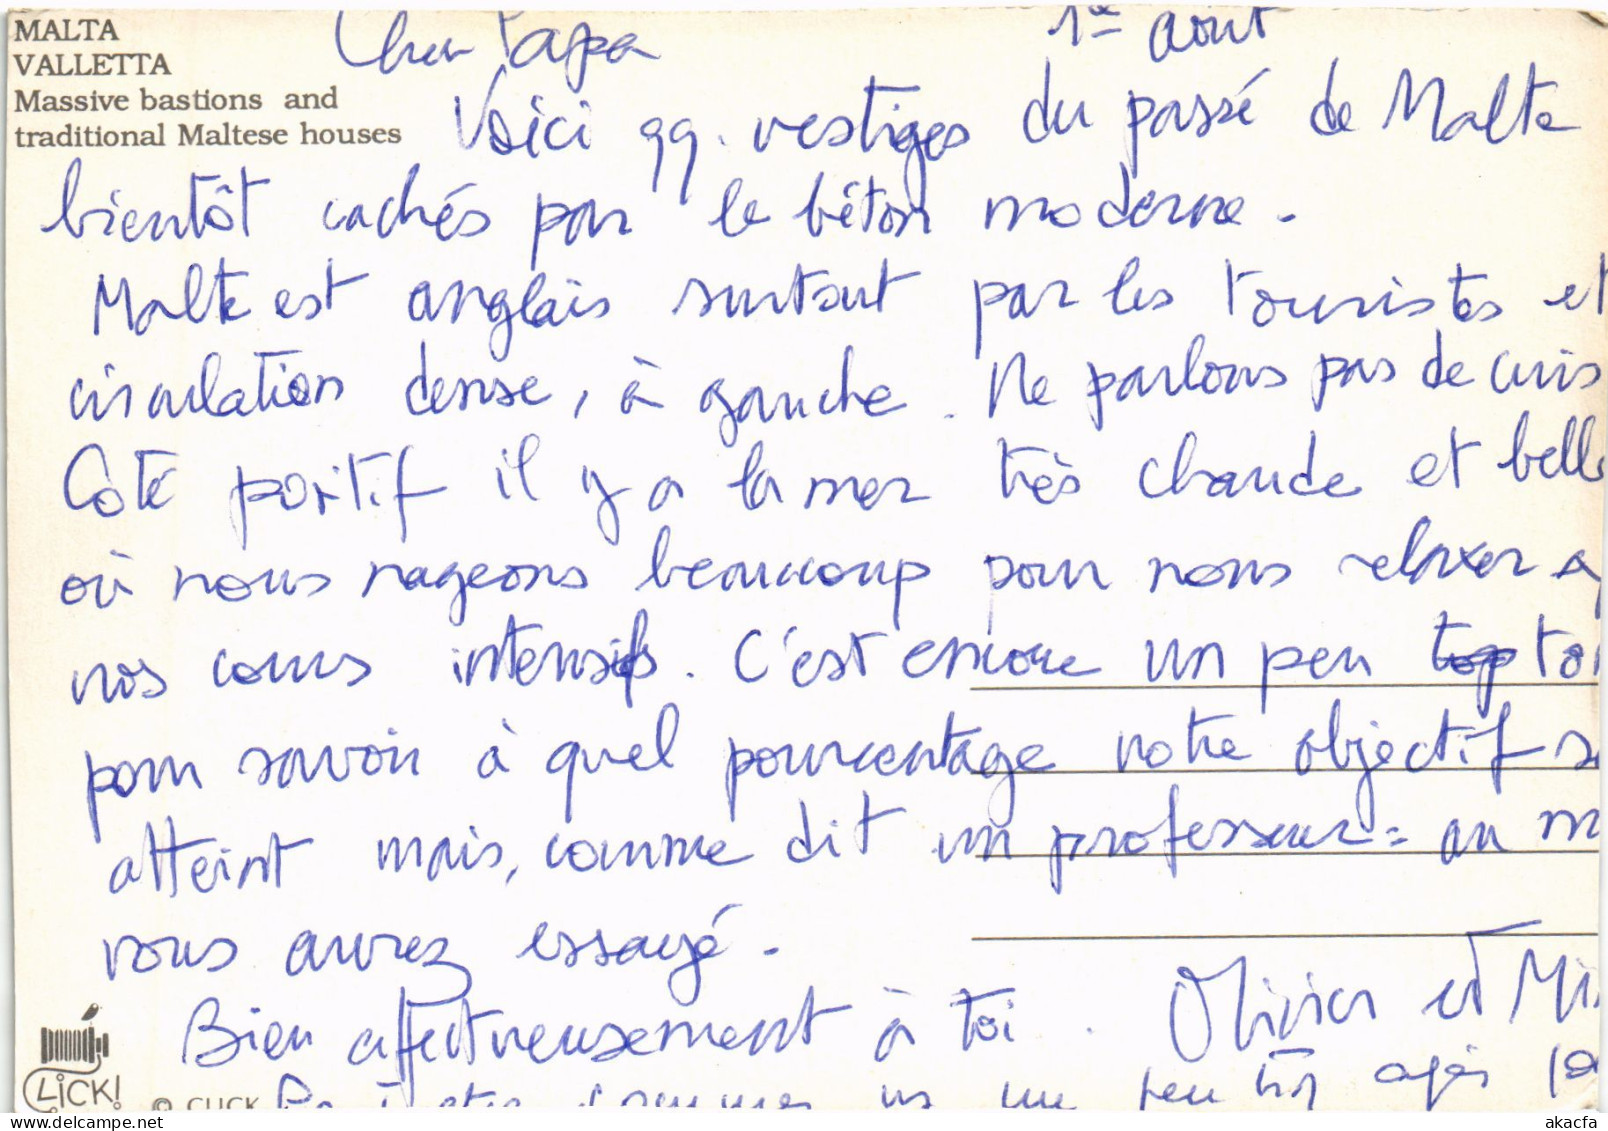 MALTA
VALLETTA
Massive bastions and
traditional Maltese houses
Cher Papa 1er août
Voici qq. vestiges du passé de Malte
bientôt cachés par le béton moderne.
Malte est anglais surtout par les touristes et
circulation dense, à gauche. Ne parlons pas de cuis
Côté positif il y a la mer très chaude et belle
où nous nageons beaucoup pour nous relaxer a
nos cours intensifs. C'est encore un peu top to
pour savoir à quel pourcentage notre objectif s
atteint mais, comme dit un professeur = au m
vous aurez essayé.
Bien affectueusement à toi. Olivier et Mi
CLICK!
© CLICK sommes un peu après
akacfa
www.delcampe.net